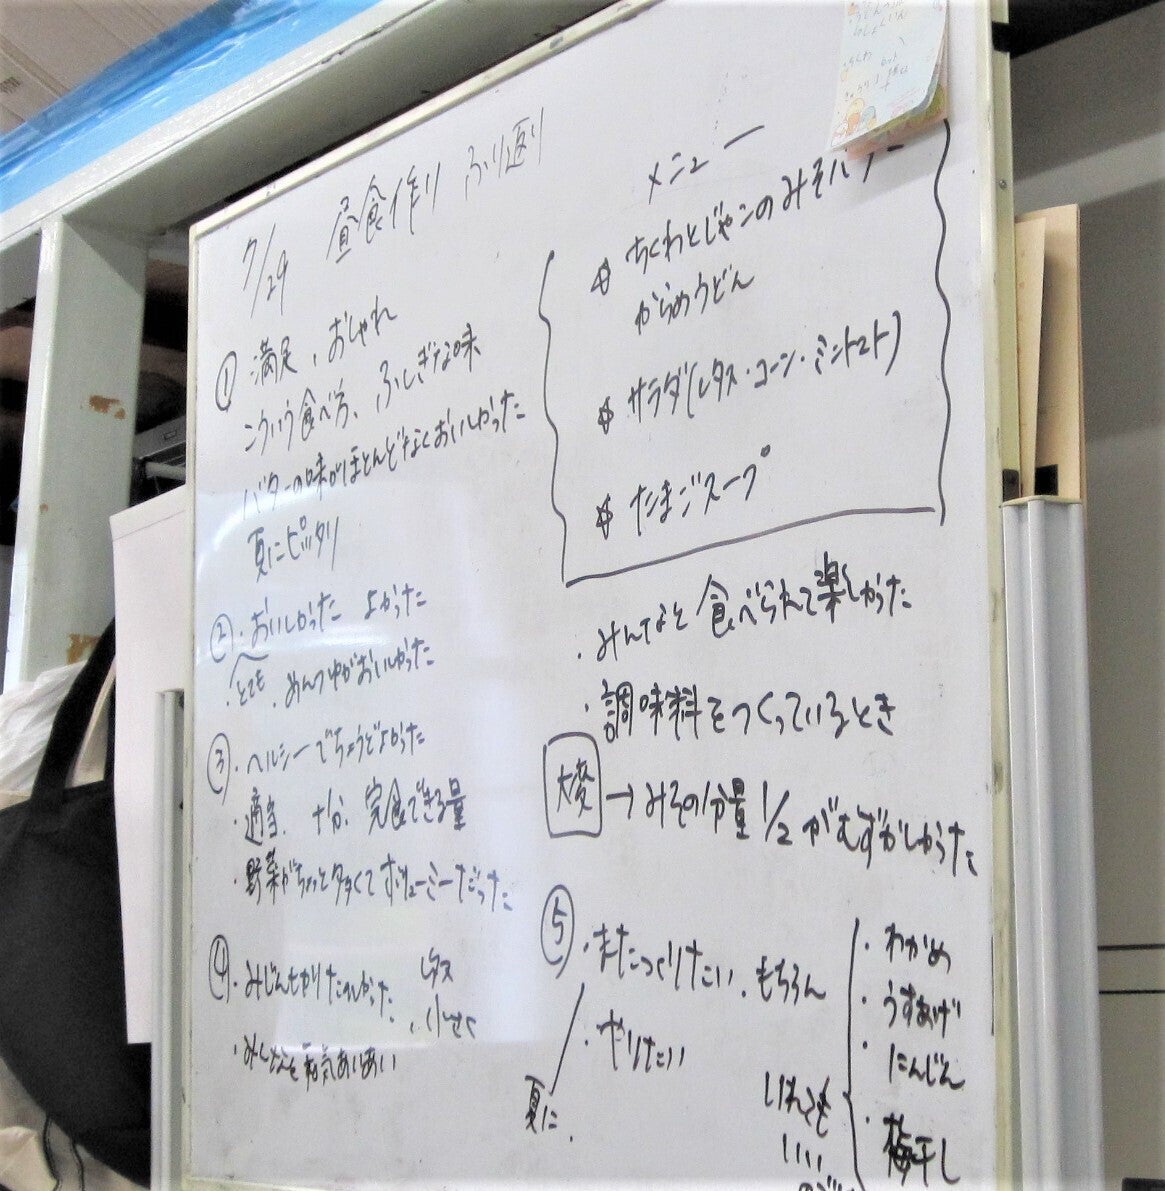 7/29 昼食作り ふり返り
① 満足、おしゃれ
こういう食べ方、ふしぎな味
バターの味がほとんどなくおいしかった
夏にピッタリ
②・おいしかった よかった
とても
・めんつゆがおいしかった
③・ヘルシーでちょうどよかった
・適当、十分、完食できる量
・野菜がちょっと多くてボリューミーだった
④・みじんぎりたのしかった、レタス
小さく
メニュー
☆ ちくわとじゃこのみそバター
からめうどん
☆ サラダ(レタス・コーン・ミニトマト)
☆ たまごスープ
・みんなと食べられて楽しかった
・調味料をつくっているとき
大変→みその分量1/2がむずかしかった
⑤・またつくりたい、もちろん
・やりたい
夏に
いれても
いい
・わかめ
・うすあげ
・にんじん
・梅干し